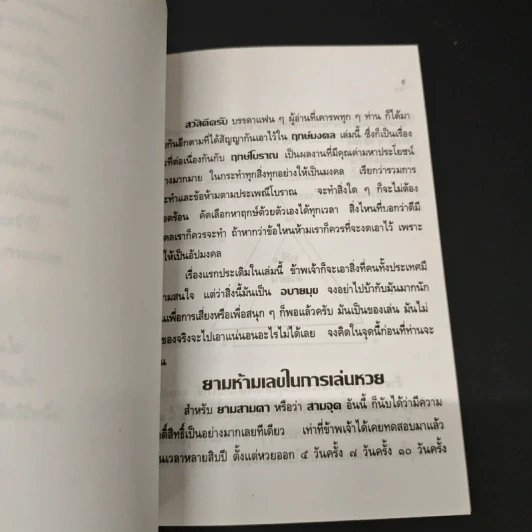 ๕
สวัสดีครับ บรรดาแฟน ๆ ผู้อ่านที่เคารพทุก ๆ ท่าน ก็ได้มา
กันอีกตามที่ได้สัญญากันเอาไว้ใน ฤกษ์มงคล เล่มนี้ ซึ่งก็เป็นเรื่อง
ที่ต่อเนื่องกันกับ ฤกษ์โบราณ เป็นผลงานที่มีคุณค่ามหาประโยชน์
มากมาย ในกระทำทุกสิ่งทุกอย่างให้เป็นมงคล เรียกว่ารวมการ
และข้อห้ามตามประเพณีโบราณ จะทำสิ่งใด ๆ ก็จะไม่ต้อง
คัดเลือกหาฤกษ์ด้วยตัวเองได้ทุกเวลา สิ่งไหนที่บอกว่าดีมี
เราก็ควรจะทำ ถ้าหากว่าข้อไหนห้ามเราก็ควรที่จะงดเอาไว้ เพราะ
ให้เป็นอัปมงคล
เรื่องแรกประเดิมในเล่มนี้ ข้าพเจ้าก็จะเอาสิ่งที่คนทั้งประเทศมี
สนใจ แต่ว่าสิ่งนี้มันเป็น อบายมุข จงอย่าไปบ้ากับมันมากนัก
เพื่อการเสี่ยงหรือเพื่อสนุก ๆ ก็พอแล้วครับ มันเป็นของเล่น มันไม่
ของจริงจะไปเอาแน่นอนอะไรไม่ได้เลย จงคิดในจุดนี้ก่อนที่ท่านจะ
ยามห้ามเลขในการเล่นหวย
สำหรับ ยามสามตา หรือว่า สามจุด อันนี้ ก็นับได้ว่ามีความ
สิทธิ์เป็นอย่างมากเลยทีเดียว เท่าที่ข้าพเจ้าได้เคยทดสอบมาแล้ว
เวลาหลายสิบปี ตั้งแต่หวยออก ๕ วันครั้ง ๗ วันครั้ง ๑๐ วันครั้ง